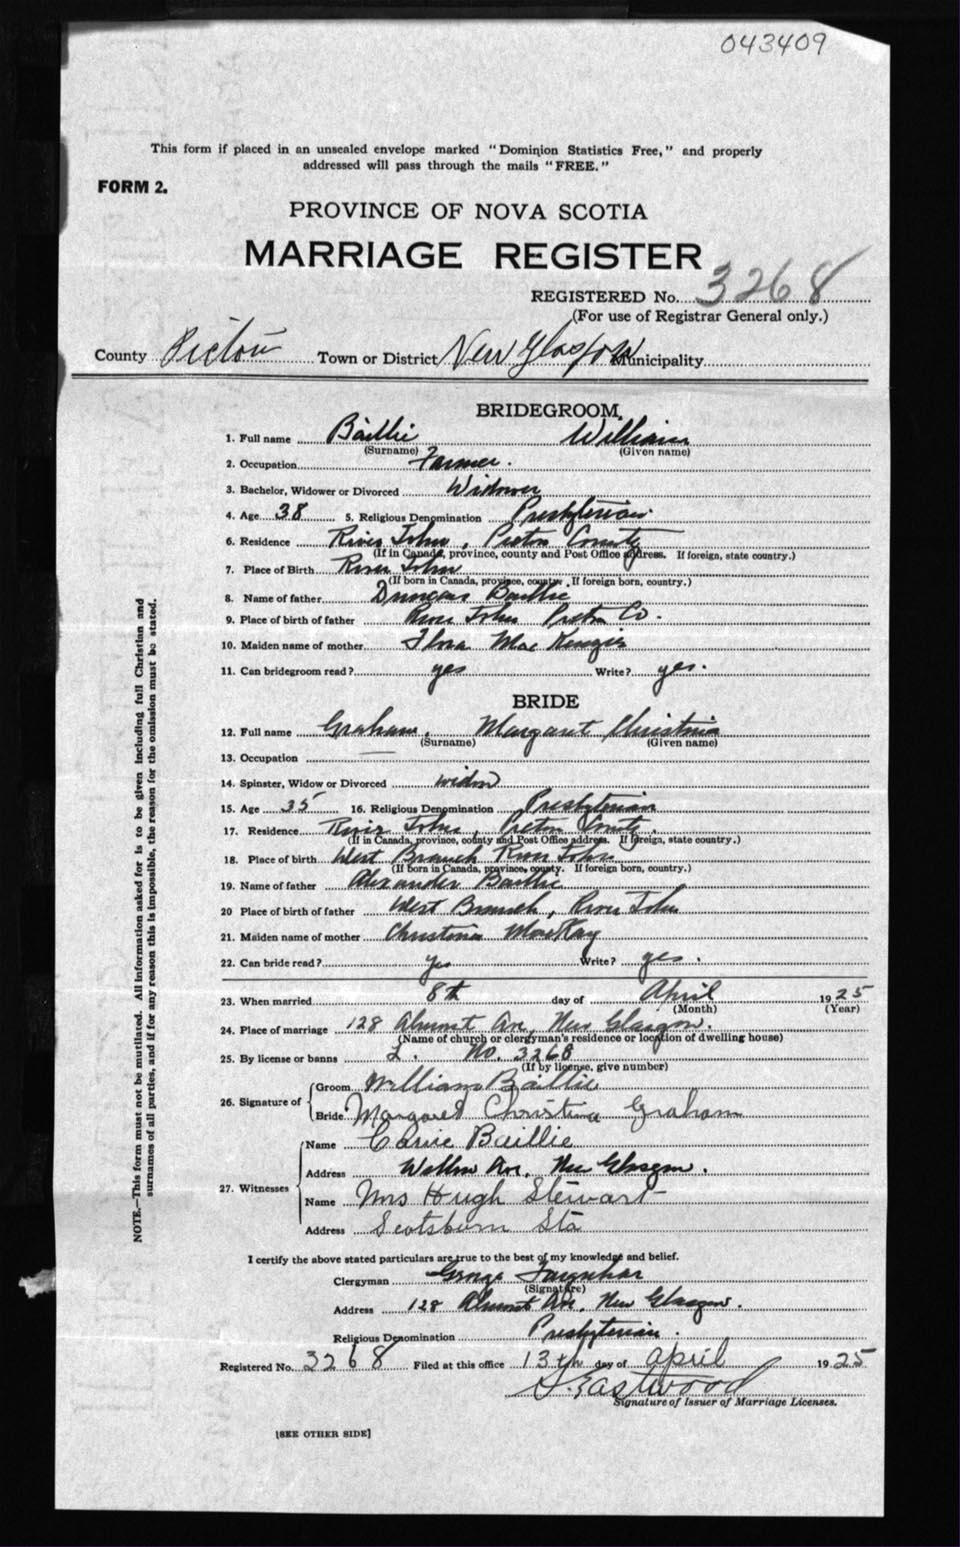 043409
This form if placed in an unsealed envelope marked "Dominion Statistics Free," and properly
addressed will pass through the mails "FREE."
FORM 2.
PROVINCE OF NOVA SCOTIA
MARRIAGE REGISTER
REGISTERED No. 3268
(For use of Registrar General only.)
County Pictou Town or District New Glasgow Municipality
BRIDEGROOM.
1. Full name Baillie William
(Surname) (Given name)
2. Occupation Farmer.
3. Bachelor, Widower or Divorced Widower
4. Age 38 5. Religious Denomination Presbyterian
6. Residence River John, Pictou County
(If in Canada, province, county and Post Office address. If foreign, state country.)
7. Place of Birth River John
(If born in Canada, province, county. If foreign born, country.)
8. Name of father Duncan Baillie
9. Place of birth of father River John Pictou Co.
10. Maiden name of mother Flora MacKenzie
11. Can bridegroom read? yes Write? yes.
BRIDE
12. Full name Graham, Margaret Christina
(Surname) (Given name)
13. Occupation —
14. Spinster, Widow or Divorced widow
15. Age 35 16. Religious Denomination Presbyterian
17. Residence River John, Pictou County.
(If in Canada, province, county and Post Office address. If foreign, state country.)
18. Place of birth West Branch River John
(If born in Canada, province, county. If foreign born, country.)
19. Name of father Alexander Baillie
20 Place of birth of father West Branch, River John
21. Maiden name of mother Christina MacKay
22. Can bride read? yes Write? yes.
23. When married 8th day of April 1925
(Month) (Year)
24. Place of marriage 128 Almont Ave, New Glasgow.
(Name of church or clergyman's residence or location of dwelling house)
25. By license or banns L. No. 3268
(If by license, give number)
26. Signature of Groom William Baillie
Bride Margaret Christina Graham
27. Witnesses Name Carrie Baillie
Address Willow Ave, New Glasgow.
Name Mrs Hugh Stewart
Address Scotsburn Sta
I certify the above stated particulars are true to the best of my knowledge and belief.
Clergyman George Farquhar
(Signature)
Address 128 Almont Ave, New Glasgow.
Religious Denomination Presbyterian.
Registered No. 3268 Filed at this office 13th day of April 1925
Eastwood
Signature of Issuer of Marriage Licenses.
[SEE OTHER SIDE]
NOTE.—This form must not be mutilated. All information asked for is to be given including full Christian and
surnames of all parties, and if for any reason this is impossible, the reason for the omission must be stated.